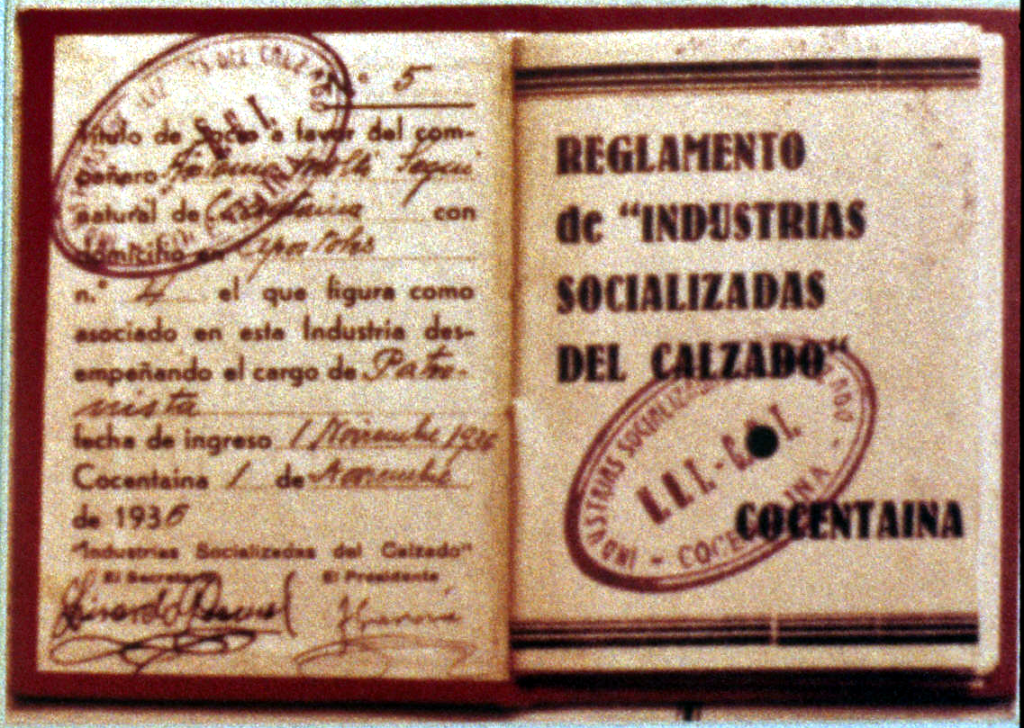 ° 5
Título de Socio a favor del com-
pañero Antonio Moltó Seguí
natural de Cocentaina con
domicilio en
n.° 4 el que figura como
asociado en esta Industria des-
empeñando el cargo de Patro-
nista
fecha de ingreso 1 Noviembre 1936
Cocentaina 1 de Noviembre
de 1936
"Industrias Socializadas del Calzado"
El Secretario El Presidente
REGLAMENTO
de "INDUSTRIAS
SOCIALIZADAS
DEL CALZADO"
COCENTAINA
INDUSTRIAS SOCIALIZADAS
COCENTAINA
DEL CALZADO